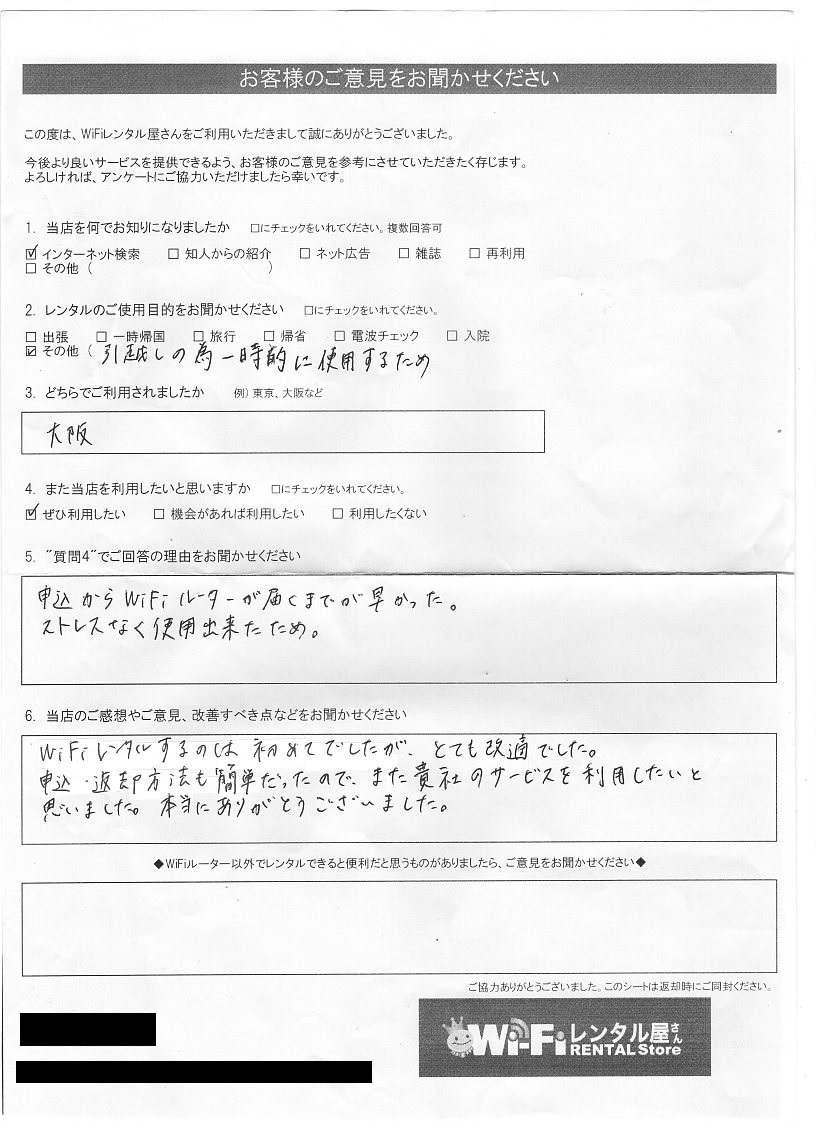 お客様のご意見をお聞かせください
この度は、WiFiレンタル屋さんをご利用いただきまして誠にありがとうございました。
今後より良いサービスを提供できるよう、お客様のご意見を参考にさせていただきたく存じます。
よろしければ、アンケートにご協力いただけましたら幸いです。
1. 当店を何でお知りになりましたか □にチェックをいれてください。複数回答可
☑ インターネット検索 □ 知人からの紹介 □ ネット広告 □ 雑誌 □ 再利用
□ その他 ( )
2. レンタルのご使用目的をお聞かせください □にチェックをいれてください。
□ 出張 □ 一時帰国 □ 旅行 □ 帰省 □ 電波チェック □ 入院
☑ その他 ( 引越しの為一時的に使用するため
3. どちらでご利用されましたか 例) 東京、大阪など
大阪
4. また当店を利用したいと思いますか □にチェックをいれてください。
☑ ぜひ利用したい □ 機会があれば利用したい □ 利用したくない
5. "質問4"でご回答の理由をお聞かせください
申込からWiFiルーターが届くまでが早かった。
ストレスなく使用出来たため。
6. 当店のご感想やご意見、改善すべき点などをお聞かせください
WiFiレンタルするのは初めてでしたが、とても改適でした。
申込・返却方法も簡単だったので、また貴社のサービスを利用したいと
思いました。本当にありがとうございました。
◆WiFiルーター以外でレンタルできると便利だと思うものがありましたら、ご意見をお聞かせください◆
ご協力ありがとうございました。このシートは返却時にご同封ください。
Wi-Fiレンタル屋さん
RENTAL Store